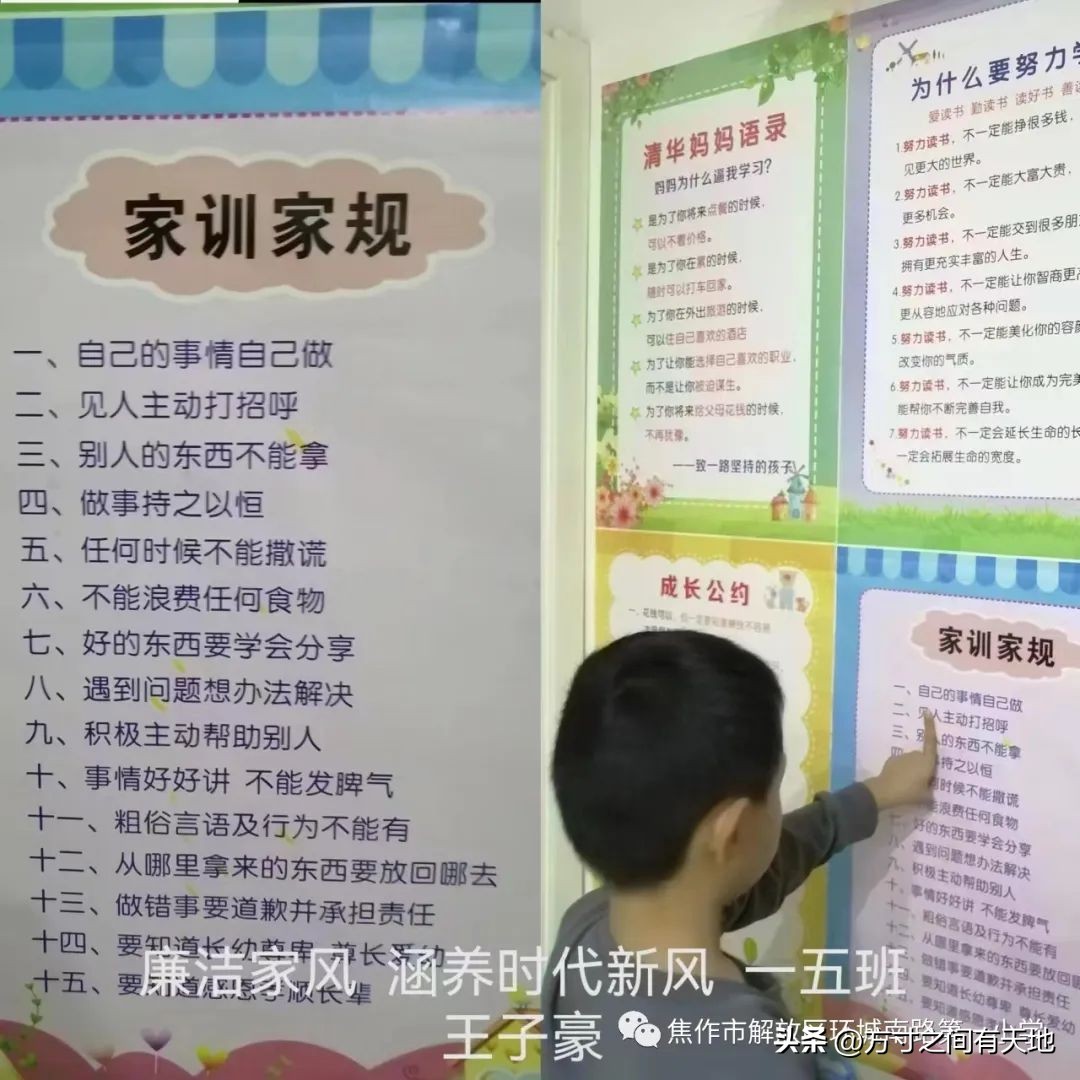 家训家规
一、自己的事情自己做
二、见人主动打招呼
三、别人的东西不能拿
四、做事持之以恒
五、任何时候不能撒谎
六、不能浪费任何食物
七、好的东西要学会分享
八、遇到问题想办法解决
九、积极主动帮助别人
十、事情好好讲 不能发脾气
十一、粗俗言语及行为不能有
十二、从哪里拿来的东西要放回哪去
十三、做错事要道歉并承担责任
十四、要知道长幼尊卑 尊长爱幼
十五、要知道感恩孝顺长辈
清华妈妈语录
妈妈为什么逼我学习?
是为了你将来点餐的时候,
可以不看价格。
是为了你在累的时候,
随时可以打车回家。
为了你在外出旅游的时候,
可以住自己喜欢的酒店
为了让你能选择自己喜欢的职业,
而不是让你被迫谋生。
为了你将来给父母花钱的时候,
不再犹像。
——致一路坚持的孩子
为什么要努力学
爱读书 勤读书 读好书 善读
1.努力读书,不一定能挣很多钱,
见更大的世界。
2.努力读书,不一定能大富大贵,
更多机会。
3.努力读书,不一定能交到很多朋
拥有更充实丰富的人生。
4.努力读书,不一定能让你智商更
更从容地应对各种问题。
5.努力读书,不一定能美化你的容颜
改变你的气质。
6.努力读书,不一定能让你成为完美
能帮你不断完善自我。
7.努力读书,不一定会延长生命的长
一定会拓展生命的宽度。
成长公约
家训家规
一、自己的事情自己做
二、见人主动打招呼
三、别人的东西不能拿
持之以恒
何时候不能撒谎
能浪费任何食物
好的东西要学会分享
八、遇到问题想办法解决
九、积极主动帮助别人
十、事情好好讲 不能发脾气
十一、粗俗言语及行为不能有
十二、从哪里拿来的东西要放回哪
做错事要道歉并承担责任
要知道长幼尊卑 尊长爱幼
廉洁家风 涵养时代新风 一五班
王子豪
焦作市解放区环城南路第一小学
头条 @方寸之间有天地